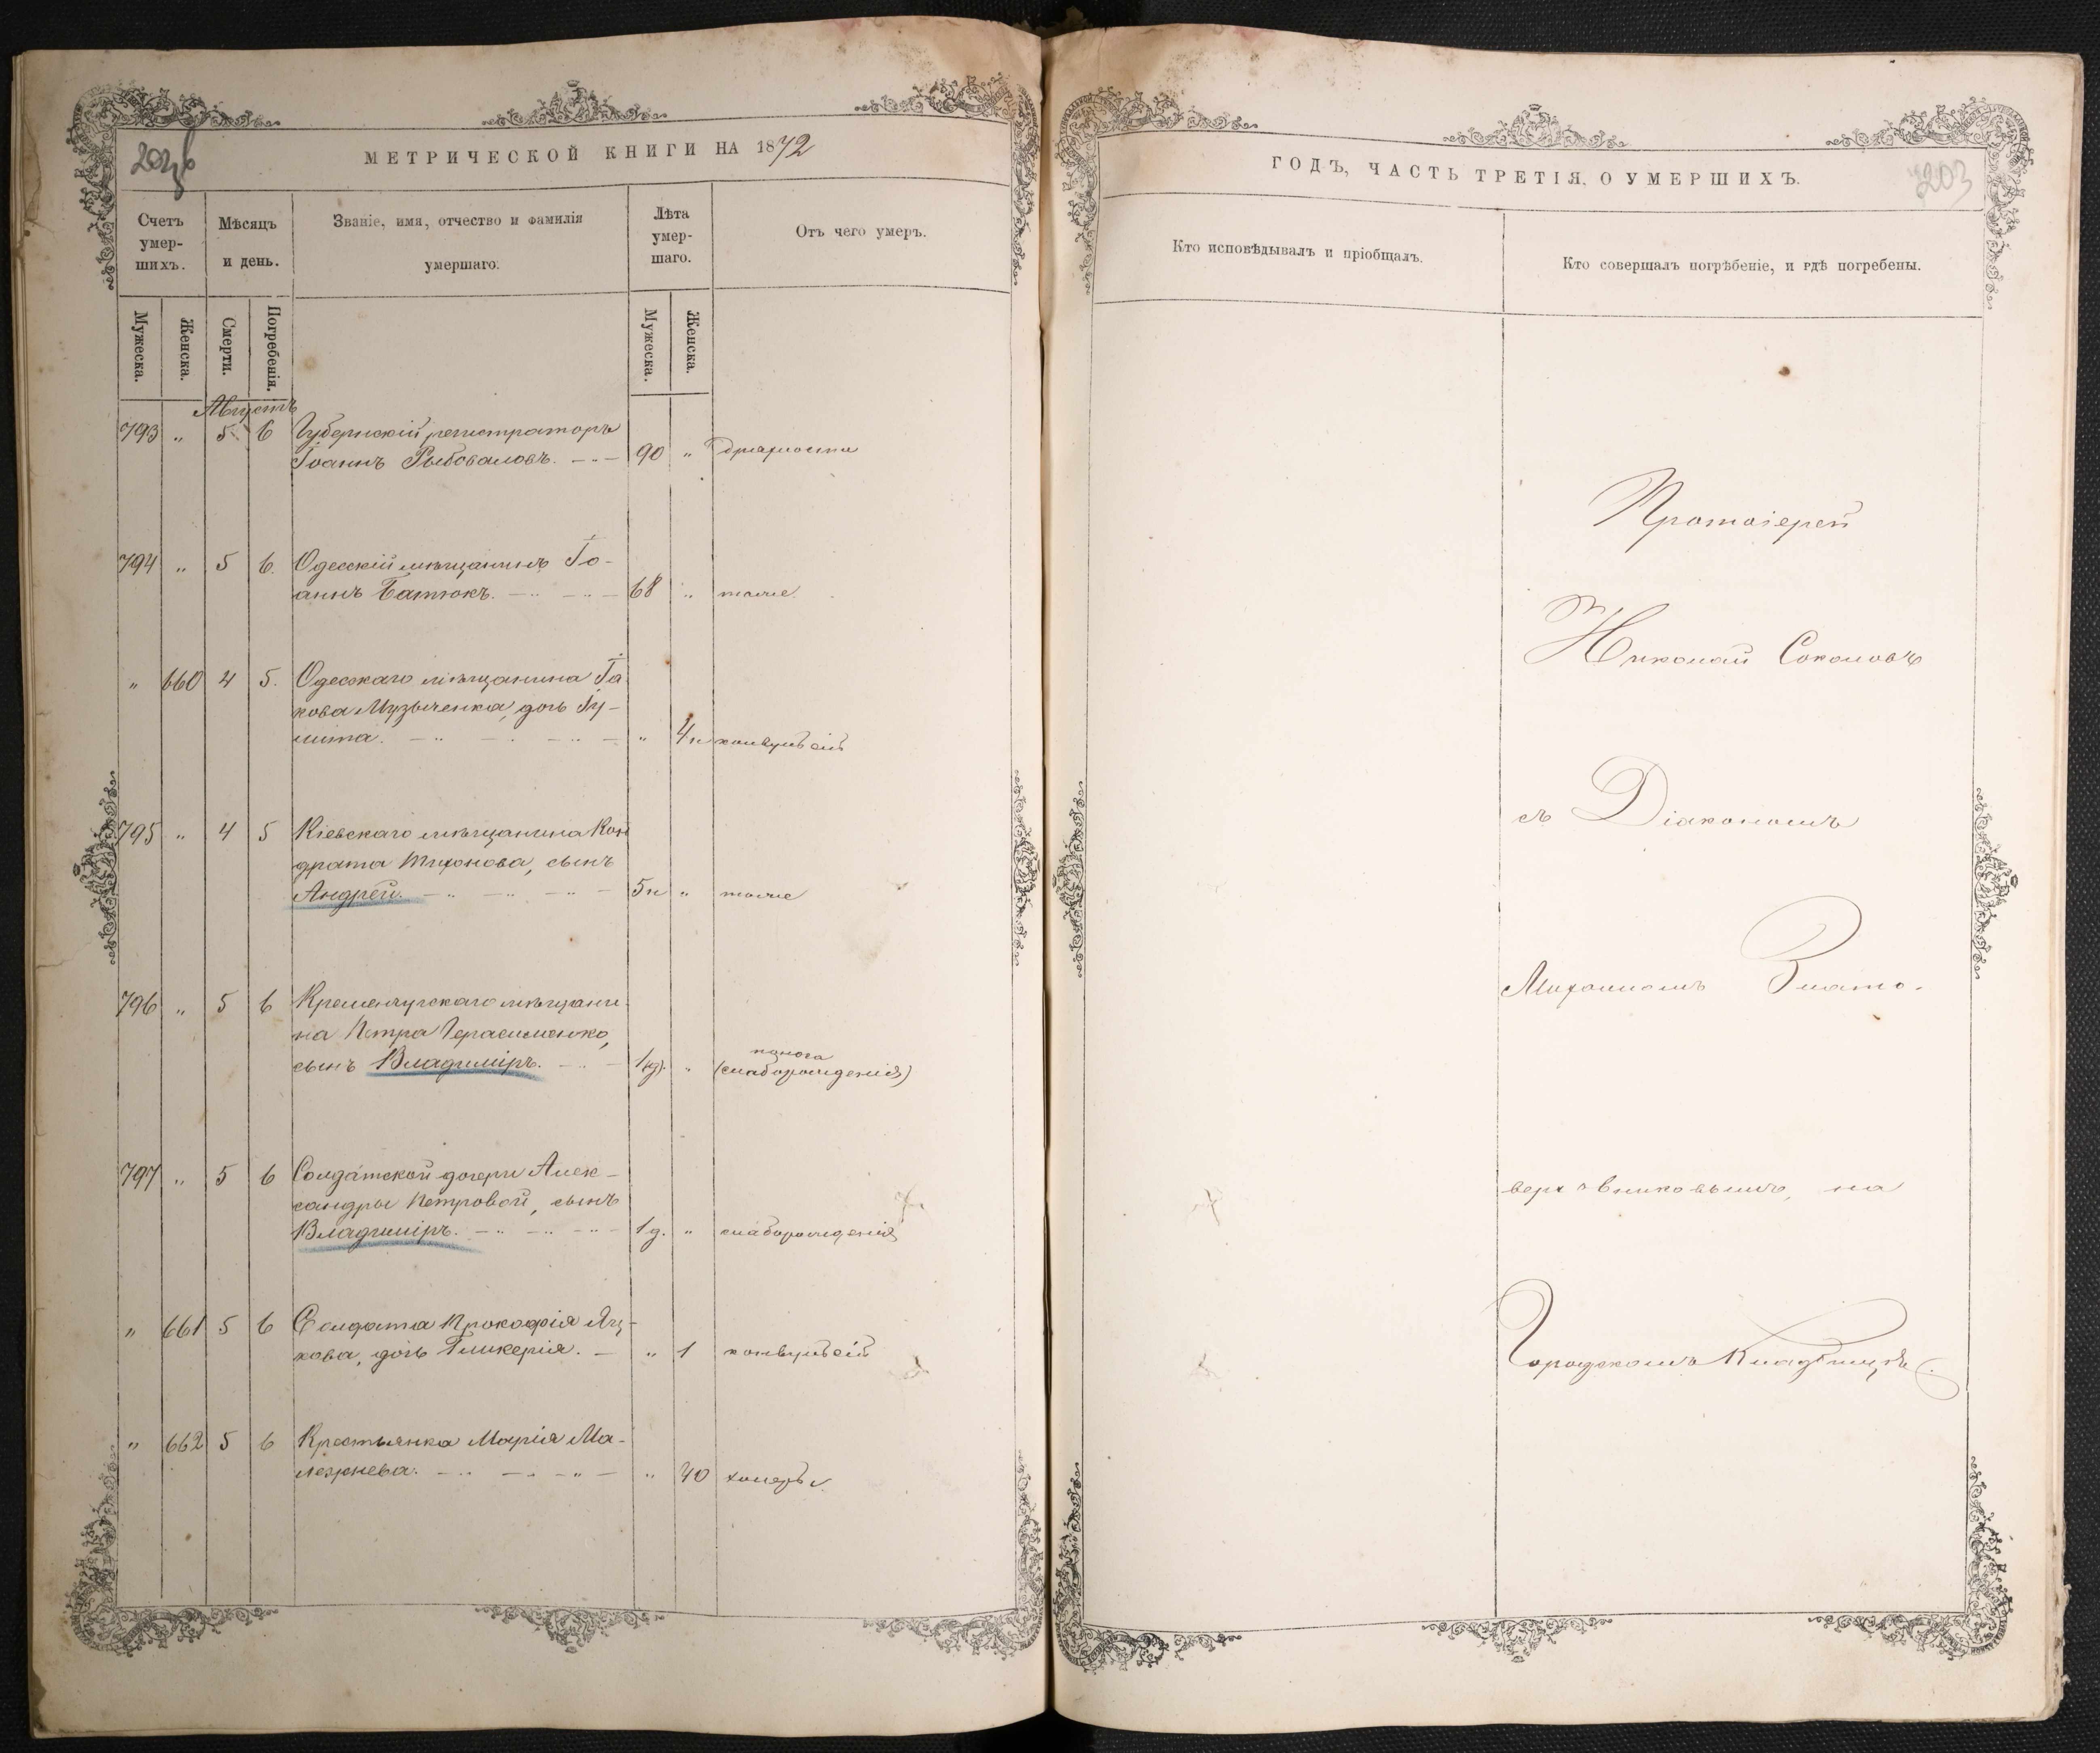 202 об
МЕТРИЧЕСКОЙ КНИГИ НА 1872
Счетъ умершихъ.
Мѣсяцъ и день.
Званіе, имя, отчество и фамилія умершаго.
Лѣта умершаго.
Отъ чего умеръ.
Мужеска.
Женска.
Смерти.
Погребенія.
Мужеска.
Женска.
Августъ
793 „ 5 6 Губернскій регистраторъ
Іоаннъ Рыбоваловъ. 90 „ дряхлости
794 „ 5 6. Одесскій мѣщанинъ Іо-
аннъ Батюкъ. 68 „ тоже.
„ 660 4 5. Одесскаго мѣщанина Іа
кова Музыченка, дочь Іу-
лита. „ 4н конвульсій
795 „ 4 5 Кіевскаго мѣщанина Кон
драта Тихонова, сынъ
Андрей. 5н „ тоже
796 „ 5 6 Кременчугскаго мѣщани-
на Петра Герасименко,
сынъ Владиміръ. „ (слаборожденія)
797 „ 5 6 Солдатской дочери Алек-
сандры Петровой, сынъ
Владиміръ. 1д. „ слаборожденія
„ 661 5 6 Солдата Прокофія Яц-
кова, дочь Гликерія. „ 1 конвульсій
„ 662 5 6 Крестьянка Марія Ма-
„ 40 холеры
ГОДЪ, ЧАСТЬ ТРЕТІЯ, О УМЕРШИХЪ.
203
Кто исповѣдывалъ и пріобщалъ.
Кто совершалъ погрѣбеніе, и гдѣ погребены.
Протоіерей
Николай Соколовъ
съ Діакономъ
Михаиломъ Злато-
верховниковымъ, на
Городскомъ Кладбищѣ.